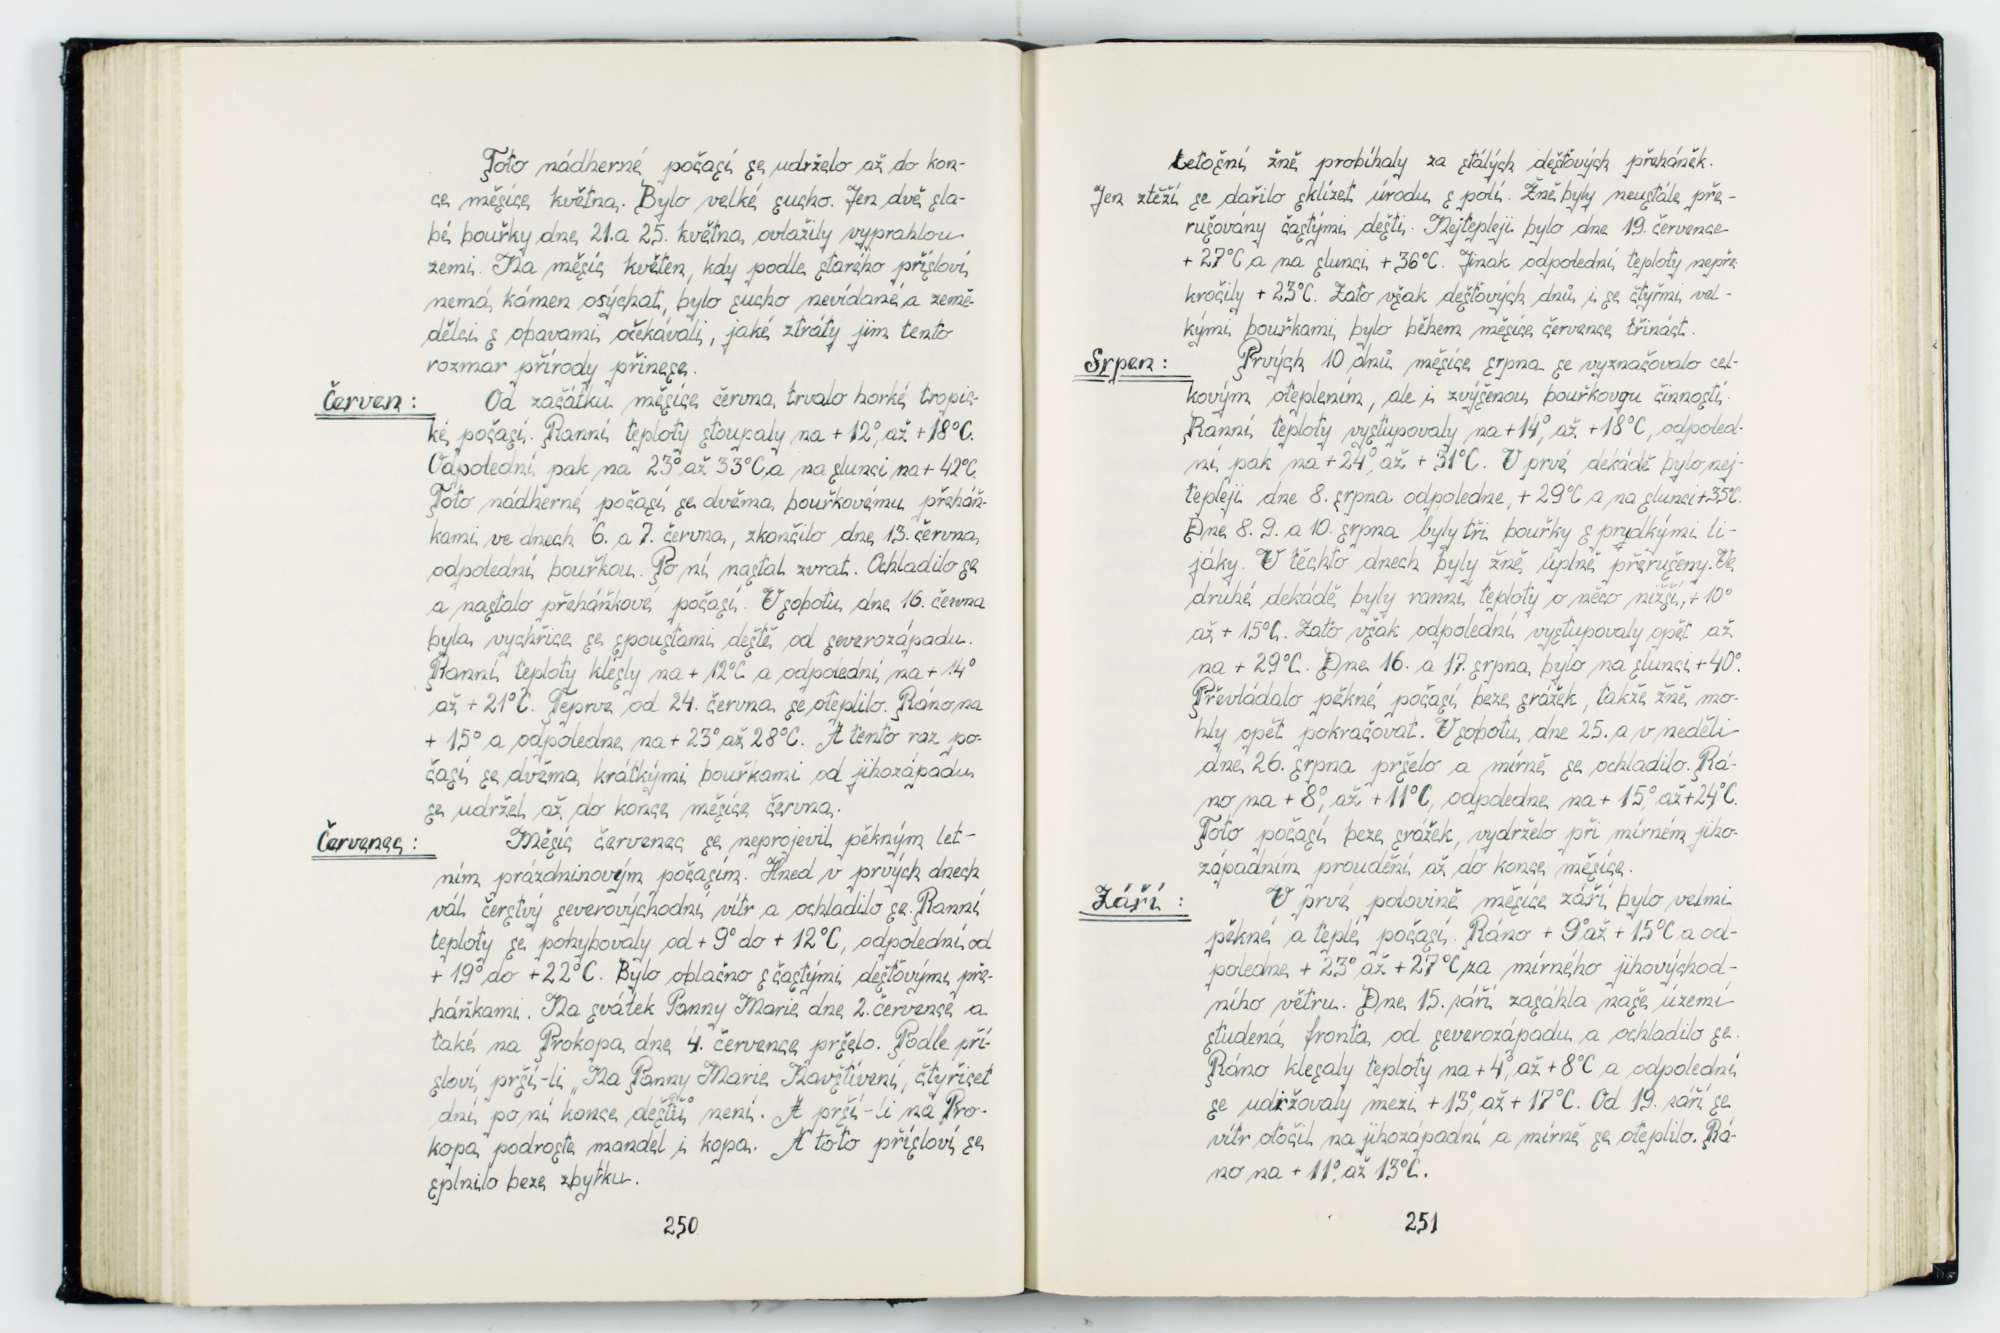 Toto nádherné počasí se udrželo až do kon-
ce měsíce května. Bylo velké sucho. Jen dvě sla-
bé bouřky dne 21. a 25. května ovlažily vyprahlou
zemi. Na měsíc květen, kdy podle starého přísloví
nemá kámen osýchat, bylo sucho nevídané a země-
dělci s obavami očekávali, jaké ztráty jim tento
rozmar přírody přinese.
Červen: Od začátku měsíce června trvalo horké tropic-
ké počasí. Ranní teploty stoupaly na + 12° až + 18°C.
Odpolední pak na 23° až 33°C a na slunci na + 42°C.
Toto nádherné počasí se dvěma bouřkovému přeháň-
kami ve dnech 6. a 7. června, zkončilo dne 13. června
odpolední bouřkou. Po ní nastal zvrat. Ochladilo se
a nastalo přeháňkové počasí. V sobotu dne 16. června
byla vychřice se spoustami deště od severozápadu.
Ranní teploty klesly na + 12°C a odpolední na + 14°
až + 21°C. Teprve od 24. června se oteplilo. Ráno na
+ 15° a odpoledne na + 23° až 28°C. A tento raz po-
časí se dvěma krátkými bouřkami od jihozápadu
se udržel až do konce měsíce června.
Červenec: Měsíc červenec se neprojevil pěkným let-
ním prázdninovým počasím. Hned v prvých dnech
vál čerstvý severovýchodní vítr a ochladilo se. Ranní
teploty se pohybovaly od + 9° do + 12°C, odpolední od
+ 19° do + 22°C. Bylo oblačno s častými dešťovými pře-
háňkami. Na svátek Panny Marie dne 2. července a
také na Prokopa dne 4. července pršelo. Podle pří-
sloví prší-li „Na Panny Marie Navštívení, čtyřicet
dní po ní konce dešťů není. A prší-li na Pro-
kopa podroste mandel i kopa. A toto přísloví se
splnilo beze zbytku.
250
Letošní žně probíhaly za stálých dešťových přeháněk.
Jen ztěží se dařilo sklízet úrodu s polí. Žně byly neustále pře-
rušovány častými dešti. Nejtepleji bylo dne 19. července
+ 27°C a na slunci + 36°C. Jinak odpolední teploty nepře
kročily + 23°C. Zato však dešťových dnů i se čtyřmi vel-
kými bouřkami bylo během měsíce července třináct.
Srpen: Prvých 10 dnů měsíce srpna se vyznačovalo cel-
kovým oteplením, ale i zvýšenou bouřkovou činností.
Ranní teploty vystupovaly na + 14° až + 18°C, odpoled-
ní pak na + 24° až + 31°C. V prvé dekádě bylo nej-
tepleji dne 8. srpna odpoledne, + 29°C a na slunci +35°C.
Dne 8. 9. a 10. srpna byly tři bouřky s prudkými li-
jáky. V těchto dnech byly žně úplně přerušeny. Ve
druhé dekádě byly ranní teploty o něco nižší, + 10°
až + 15°C. Zato však odpolední vystupovaly opět až
na + 29°C. Dne 16. a 17. srpna bylo na slunci + 40°.
Převládalo pěkné počasí beze srážek, takže žně mo-
hly opět pokračovat. V sobotu dne 25. a v neděli
dne 26. srpna pršelo a mírně se ochladilo. Rá-
no na + 8° až + 11°C, odpoledne na + 15° až +24°C.
Toto počasí beze srážek, vydrželo při mírném jiho-
západním proudění až do konce měsíce.
Září: V prvé polovině měsíce září bylo velmi
pěkné a teplé počasí. Ráno + 9° až + 15°C a od-
poledne + 23° až + 27°C za mírného jihovýchod-
ního větru. Dne 15. září zasáhla naše území
studená fronta od severozápadu a ochladilo se.
Ráno klesaly teploty na + 4° až + 8°C a odpolední
se udržovaly mezi + 13° až + 17°C. Od 19. září se
vítr otočil na jihozápadní a mírně se oteplilo. Rá-
no na + 11° až 13°C.
251